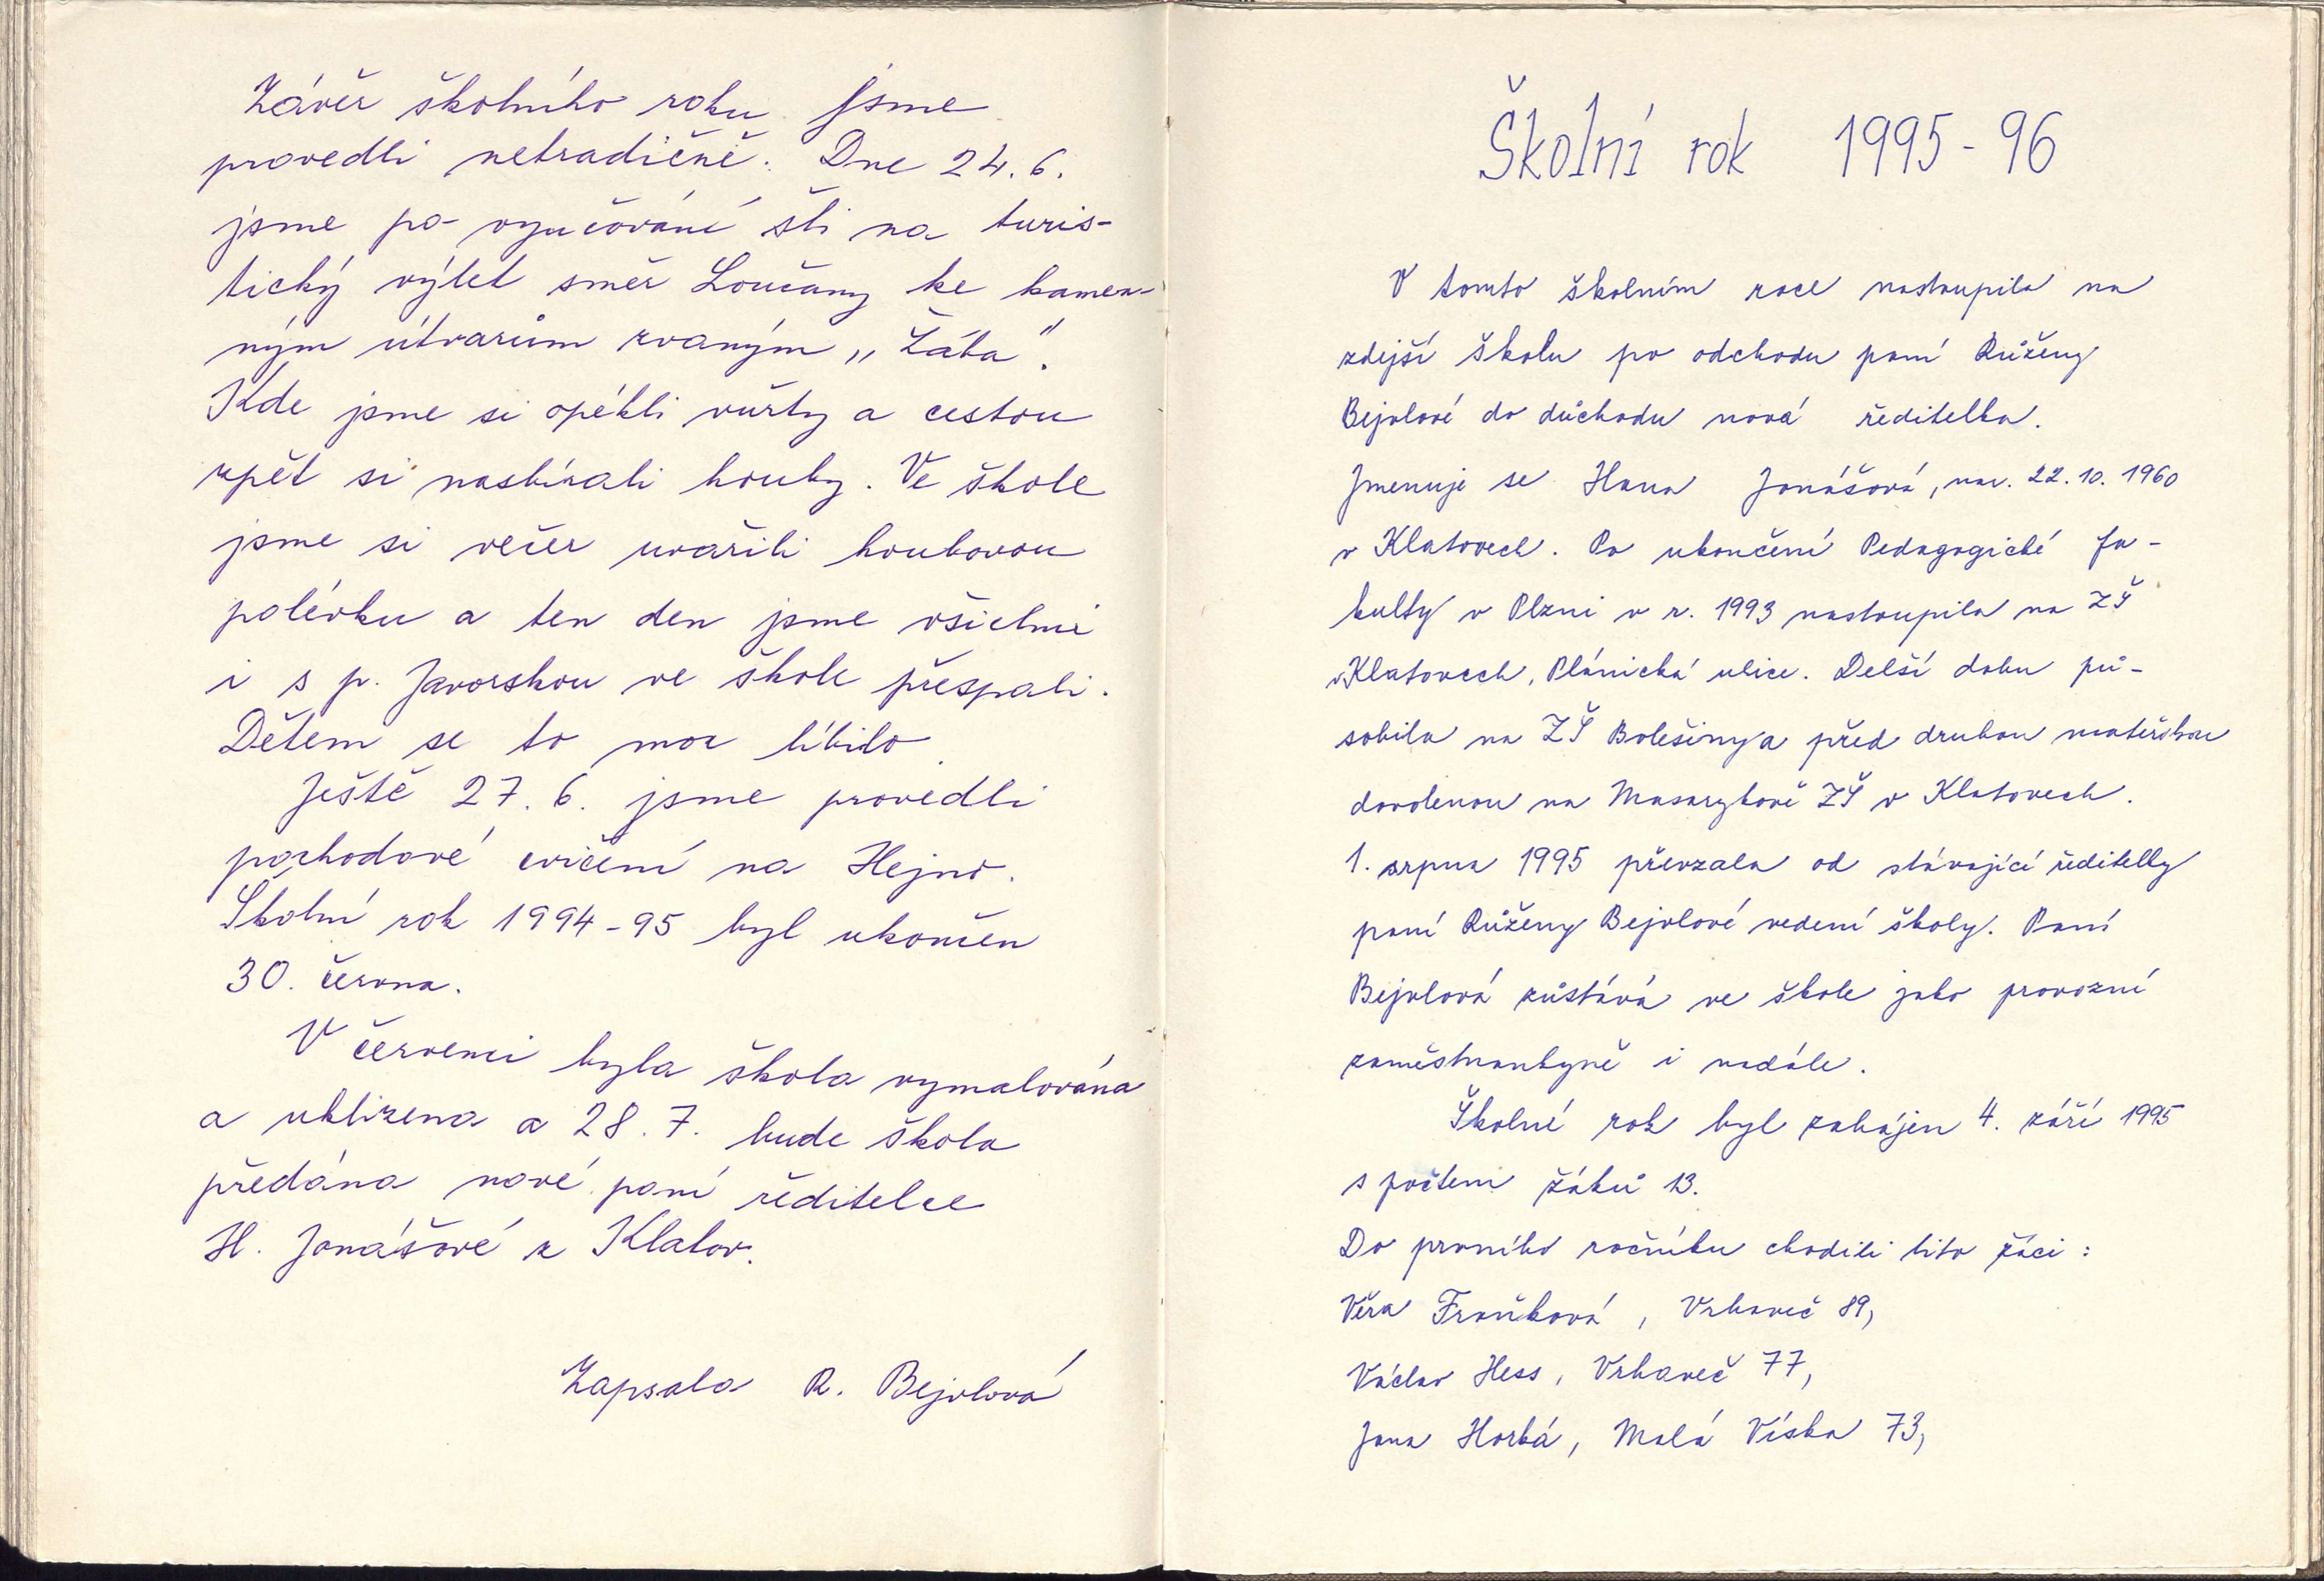 Závěr školního roku jsme
provedli netradičně. Dne 24.6.
jsme po vyučování šli na turis-
tický výlet směr Loučany ke kamen-
ným útvarům zvaným „Žába".
Kde jsme si opékli vuřty a cestou
zpět si nasbírali houby. Ve škole
jsme si večer uvařili houbovou
polévku a ten den jsme všichni
i s p. Javorskou ve škole přespali.
Dětem se to moc líbilo.
Ještě 27.6. jsme provedli
pochodové cvičení na Hejno.
Školní rok 1994-95 byl ukončen
30. června.
V červenci byla škola vymalována
a uklizena a 28.7. bude škola
předána nové paní ředitelce
H. Jonášové z Klatov.
Zapsala R. Bejvlová
Školní rok 1995-96
V tomto školním roce nastoupila na
zdejší školu po odchodu paní Růženy
Bejvlové do důchodu nová ředitelka.
Jmenuje se Hana Jonášová, nar. 22.10.1960
v Klatovech. Po ukončení Pedagogické fa-
kulty v Plzni v r. 1993 nastoupila na ZŠ
v Klatovech, Plánická ulice. Delší dobu pů-
sobila na ZŠ Bolešiny a před druhou mateřskou
dovolenou na Masarykově ZŠ v Klatovech.
1. srpna 1995 převzala od stávající ředitelky
paní Růženy Bejvlové vedení školy. Paní
Bejvlová zůstává ve škole jako provozní
zaměstnankyně i nadále.
Školní rok byl zahájen 4. září 1995
s počtem žáků 13.
Do prvního ročníku chodili tito žáci:
Věra Fraňková, Vrhaveč 89,
Václav Hess, Vrhaveč 77,
Jana Horká, Malá Víska 73,